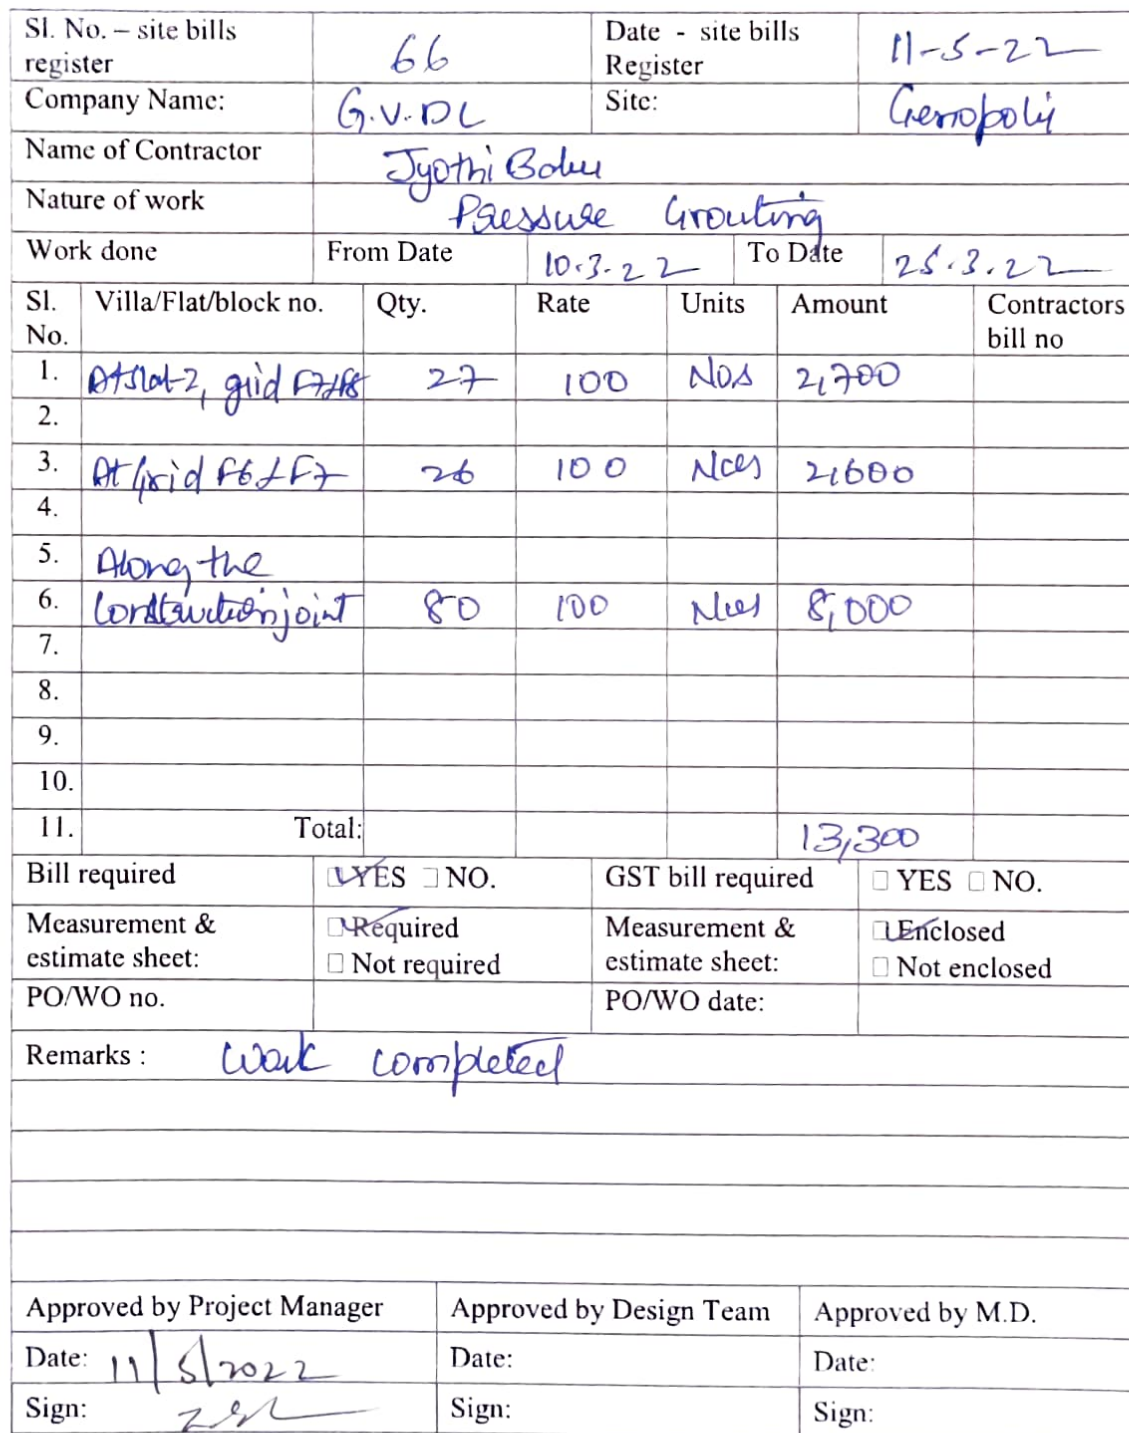 Sl. No. – site bills register 66 Date - site bills Register 11-5-22
Company Name: G.V.DC Site: Genopolis
Name of Contractor Jyothi Babu
Nature of work Pressure Grouting
Work done From Date 10.3.22 To Date 25.3.22
Sl. No. Villa/Flat/block no. Qty. Rate Units Amount Contractors bill no
1. At slab-2, grid F7 27 100 Nos 2,700
2.
3. At Grid F6 & F7 26 100 Nos 2,600
4.
5. Along the
6. Construction joint 80 100 Nos 8,000
7.
8.
9.
10.
11. Total: 13,300
Bill required YES NO. GST bill required YES NO.
Measurement & estimate sheet: Required Not required Measurement & estimate sheet: Enclosed Not enclosed
PO/WO no. PO/WO date:
Remarks : Work completed
Approved by Project Manager Approved by Design Team Approved by M.D.
Date: 11/5/2022 Date: Date:
Sign: Sign: Sign: